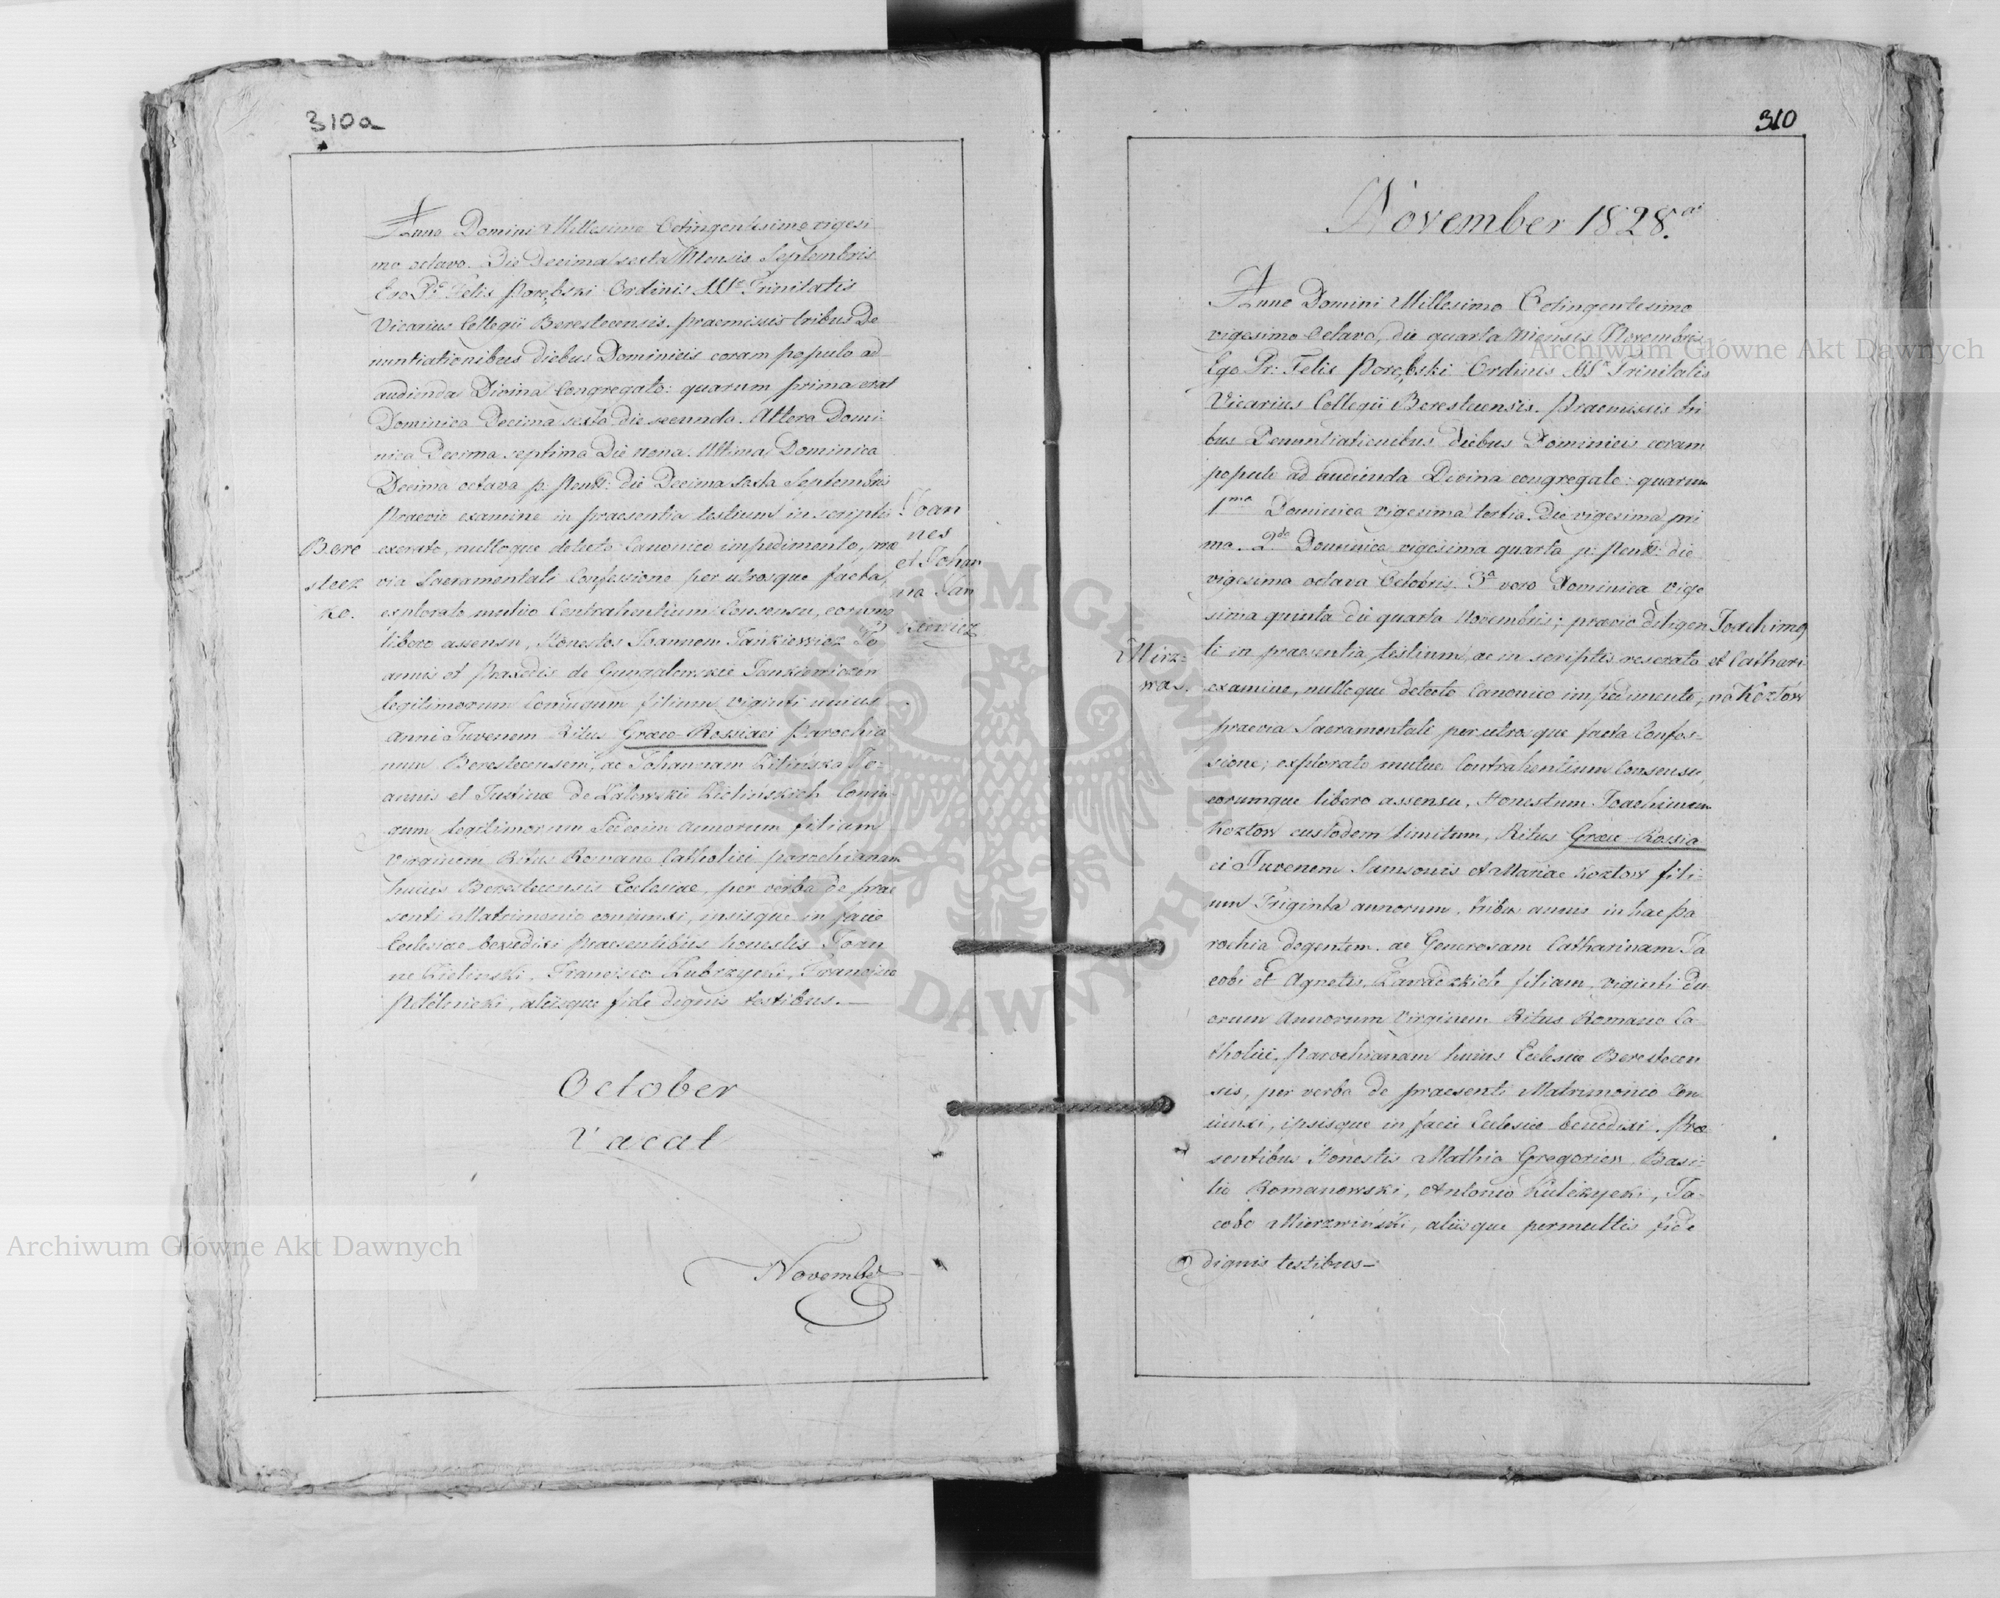 310a
Anno Domini Millesimo Octingentesimo vigesi
mo octavo. Die Decima sexta Mensis Septembris
Ego Pr. Felix Porębski Ordinis SSae Trinitatis
Vicarius Collegii Berestecensis. praemissis tribus De
nuntiationibus diebus Dominicis coram populo ad
audienda Divina Congregato: quarum prima erat
Dominica Decima sexta die secunda. Altera Domi-
nica Decima septima Die nona. Ultima Dominica
Decima octava p: Pent: die Decima Sexta Septembris
Praevio examine in praesentia testium in scriptis
exerato, nulloque detecto Canonico impedimento, prae
via Sacramentali Confessione per utrosque facta,
explorato mutuo Contrahentium Consensu, eorumq
libero assensu, Honestos Joannem Jankiewicz Jo
annis et Praxedis de Jankiewiczow
legitimorum Conjugum filium viginti unius
anni Juvenem Ritus Graeco-Rossiaci Parochia
num Berestecensem, ac Johannam Zilińska Jo-
annis et Justinae de Zalewskie Zielińskich Conju-
gum legitimorum Sedecim annorum filiam
Virginem Ritus Romano Catholici parochianam
huius Berestecensis Ecclesiae, per verba de prae
senti Matrimonio coniunxi, ipsisque in facie
Ecclesiae benedixi praesentibus honestis Joan
ne Zielinski, Francisco Zubrzycki, Francisco
aliisque fide dignis testibus.—
Bere
stecz
ko.
Joan
nes
et Johan
na Jan
kiewicz
October
Vacat
November
310
November 1828.
Anno Domini Millesimo Octingentesimo
vigesimo Octavo, die quarta Mensis Novembris
Ego Pr: Felix Porębski Ordinis SSae Trinitatis
Vicarius Collegii Berestecensis. Praemissis tri
bus Denuntiationibus diebus Dominicis coram
populo ad audienda Divina congregato: quarum
1ma Dominica vigesima tertia. Die vigesima pri
ma. 2da Dominica vigesima quarta p: Pent: die
vigesima octava Octobris. 3a vero Dominica vige
sima quinta die quarta Novembris; praevio diligen
ti in praesentia testium, ac in scriptis reserato
examine, nulloque detecto Canonico impedimento,
praevia Sacramentali per utrosque facta Confes-
sione; explorato mutuo Contrahentium Consensu,
eorumque libero assensu, Honestum Joachimum
Kozłow custodem limitum, Ritus Graeco-Rossia
ci Juvenem Samsonis et Mariae Kozłow fili-
um Triginta annorum, tribus annis in hac pa
rochia degentem. ac Generosam Catharinam Ja
cobi et Agnetis filiam, viginti du
orum Annorum Virginem Ritus Romano Ca
tholici, Parochianam huius Ecclesiae Berestecen
sis, per verba de praesenti Matrimonio Con
iunxi, ipsisque in facie Ecclesiae benedixi. Prae
sentibus Honestis Mathia Gregoriew, Basi-
lio Romanowski, Antonio Kulczycki, Ja-
cobo Mierzwiński, aliisque permultis fide
dignis testibus—
Mierz-
wa.
Joachimo
et Cathari
na Kozłow
Archiwum Główne Akt Dawnych
Archiwum Główne Akt Dawnych
ARCHIWUM GŁÓWNE AKT DAWNYCH